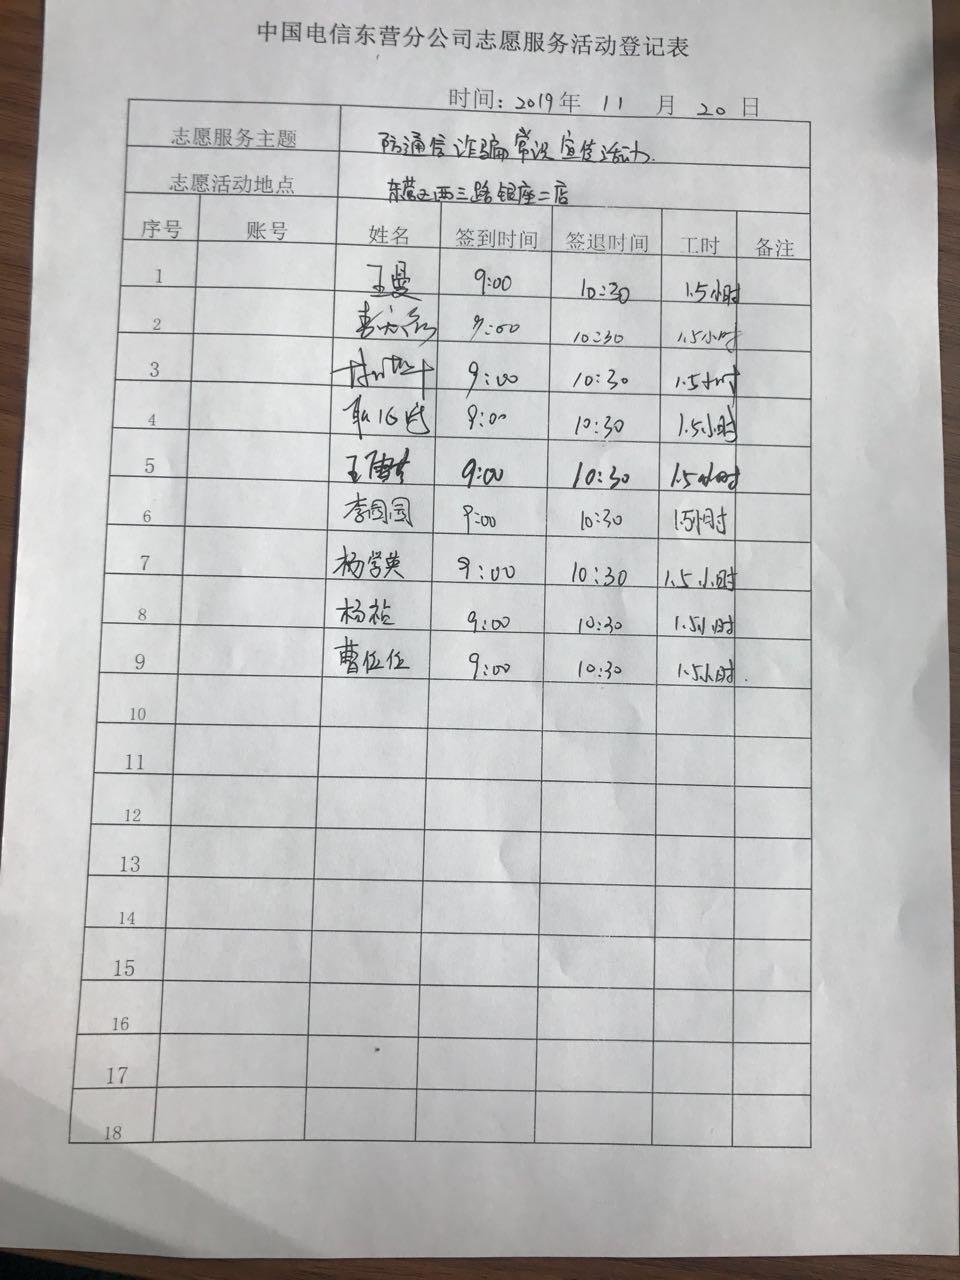 中国电信东营分公司志愿服务活动登记表
时间：2019年 11 月 20 日
志愿服务主题 防通信诈骗常识宣传活动.
志愿活动地点 东营区西三路银座二店
序号 账号 姓名 签到时间 签退时间 工时 备注
1 王曼 9:00 10:30 1.5小时
2 9:00 10:30 1.5小时
3 9:00 10:30 1.5小时
4 9:00 10:30 1.5小时
5 王 9:00 10:30 1.5小时
6 李园园 9:00 10:30 1.5小时
7 杨学英 9:00 10:30 1.5小时
8 杨 9:00 10:30 1.5小时
9 曹任任 9:00 10:30 1.5小时.
10
11
12
13
14
15
16
17
18